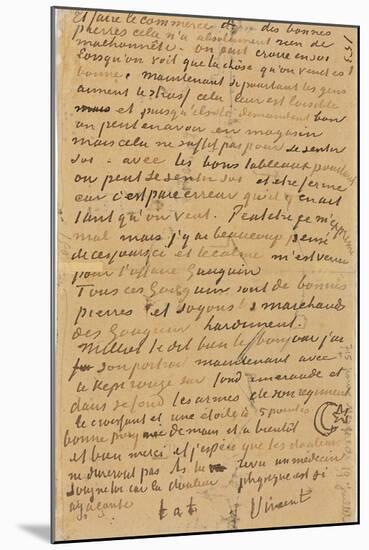 Et faire le commerce des bonnes
pierres cela n'a absolument rien de
malhonnête. On peut croire en soi
lorsqu'on voit que la chose qu'on vend est
bonne, maintenant si pourtant les gens
aiment le strass cela leur est loisible
et puisqu'ils le demandent bon
on peut en avoir en magasin
mais cela ne suffit pas pour se sentir
soi - avec les bons tableaux pourtant
on peut se sentir soi et être ferme
car c'est pure erreur qu'il y en ait
tant qu'on veut. Peut être je m'exprime
mal mais j'y ai beaucoup pensé
ces jours ci et le calme m'est venu
pour l'affaire Gauguin
Tous ces Gauguin sont de bonnes
pierres et soyons les marchands
des Gauguin hardiment.
Milliet te dit bien le bonjour j'ai
son portrait maintenant avec
le Kepi rouge sur fond emeraude et
dans ce fond les armes de son regiment
le croissant et une étoile à 5 pointes
bonne poignée de main et à bientôt
et bien merci et j'espère que les douleurs
ne dureront pas As tu un médecin
soigne toi car la douleur physique est si
agaçante
t à t Vincent